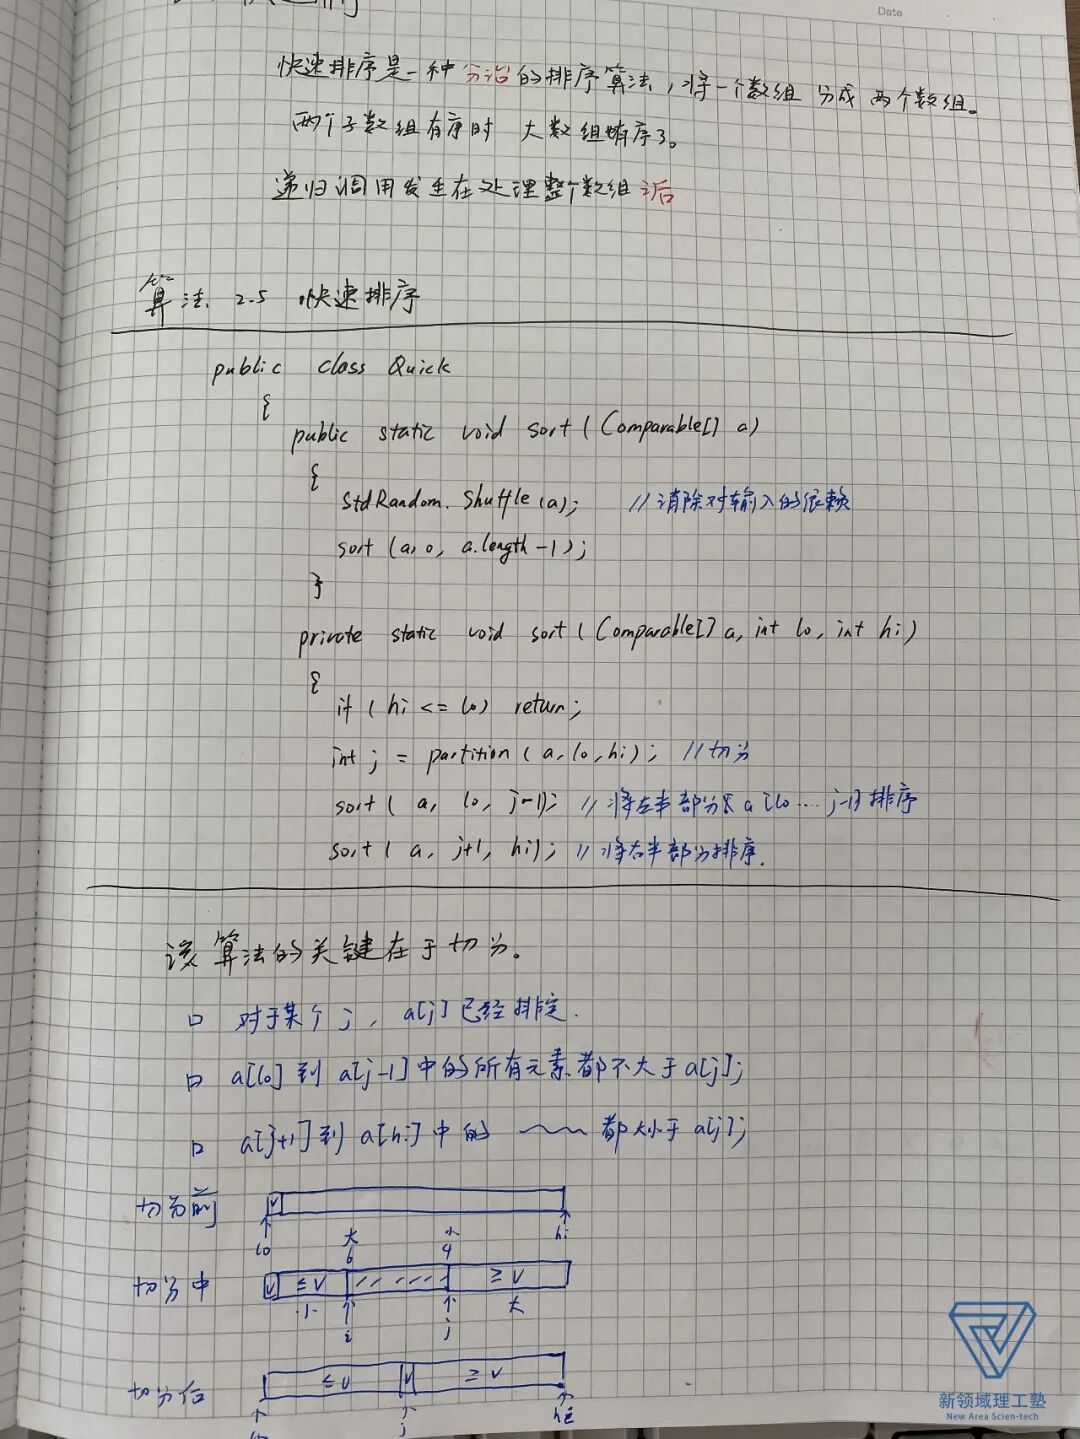 Date
快速排序是一种分治的排序算法，将一个数组分成两个数组。
两个子数组有序时 大数组也有序了。
递归调用发生在处理整个数组之后
算法 2.5 快速排序
public class Quick
{
public static void sort (Comparable[] a)
{
StdRandom.shuffle (a); //消除对输入的依赖
sort (a, 0, a.length-1);
}
private static void sort (Comparable[] a, int lo, int hi)
{
if (hi <= lo) return;
int j = partition (a, lo, hi); //切分
sort (a, lo, j-1); //将左半部分 a[lo....j-1]排序
sort (a, j+1, hi); //将右半部分排序.
该算法的关键在于切分。
对于某个 j, a[j]已经排定.
a[lo] 到 a[j-1] 中的所有元素都不大于a[j];
a[j+1] 到 a[hi] 中的 都不小于 a[j];
切分前 v
lo 大 小 hi
6 4
切分中 v ≤v ≥v
小 i j 大
切分后 ≤v v ≥v
lo j hi
新领域理工塾
New Area Scien-tech